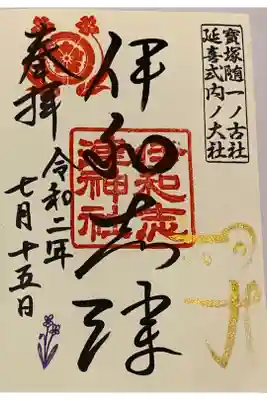 寳塚随一ノ古社
延喜式内ノ大社
伊和志津
伊和志津神社
奉拝
令和二年
七月十五日